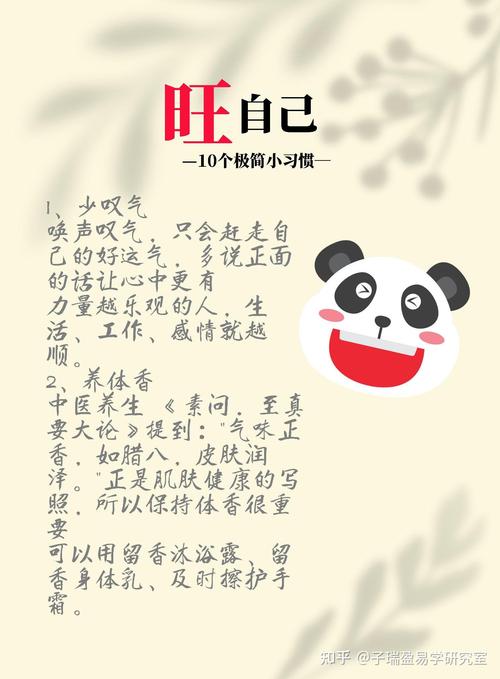 旺自己
—10个极简小习惯—
1、少叹气
唤声叹气，只会赶走自
己的好运气，多说正面
的话让心中更有
力量越乐观的人，生
活、工作、感情就越
顺。
2、养体香
中医养生《素问，至真
要大论》提到："气味正
香，如腊八，皮肤润
泽。"正是肌肤健康的写
照，所以保持体香很重
要
可以用留香沐浴露、留
香身体乳、及时擦护手
霜。
知乎 @子瑞盈易学研究室